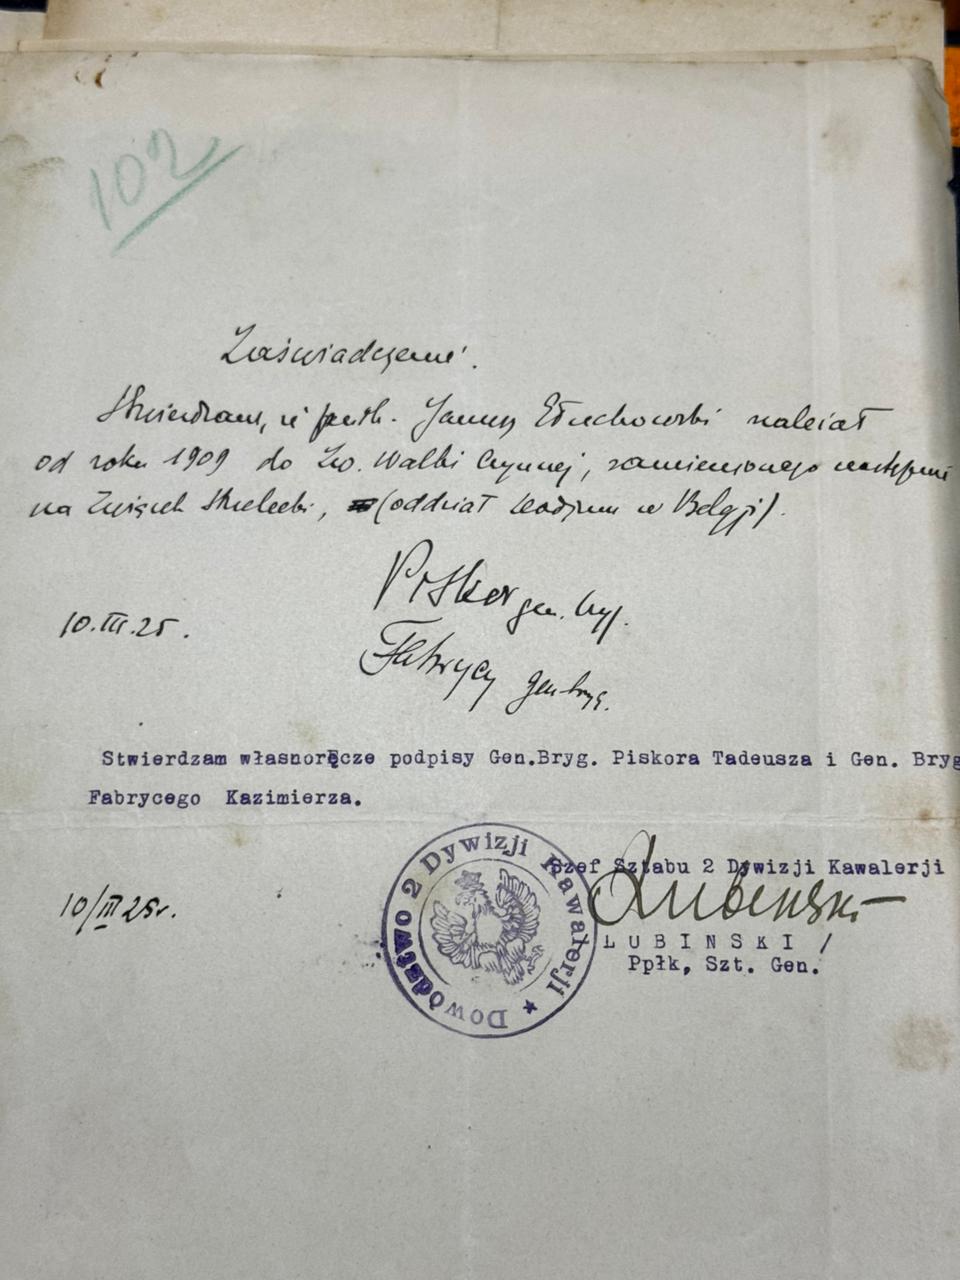 102
Zaświadczenie.
Stwierdzam, iż ppułk. Janusz Głuchowski należał
od roku 1909 do Zw. Walki Czynnej, zamienionego następnie
na Związek Strzelecki, (oddział Leodjum w Belgji).
Piskor gen. bryg.
10.III.25.
Fabrycy gen. bryg.
Stwierdzam własnoręcze podpisy Gen.Bryg. Piskora Tadeusza i Gen. Bryg
Fabrycego Kazimierza.
Szef Sztabu 2 Dywizji Kawalerji
10/III 25r.
Dowództwo 2 Dywizji Kawalerji
Lubieński
ŁUBINSKI /
Ppłk, Szt. Gen.